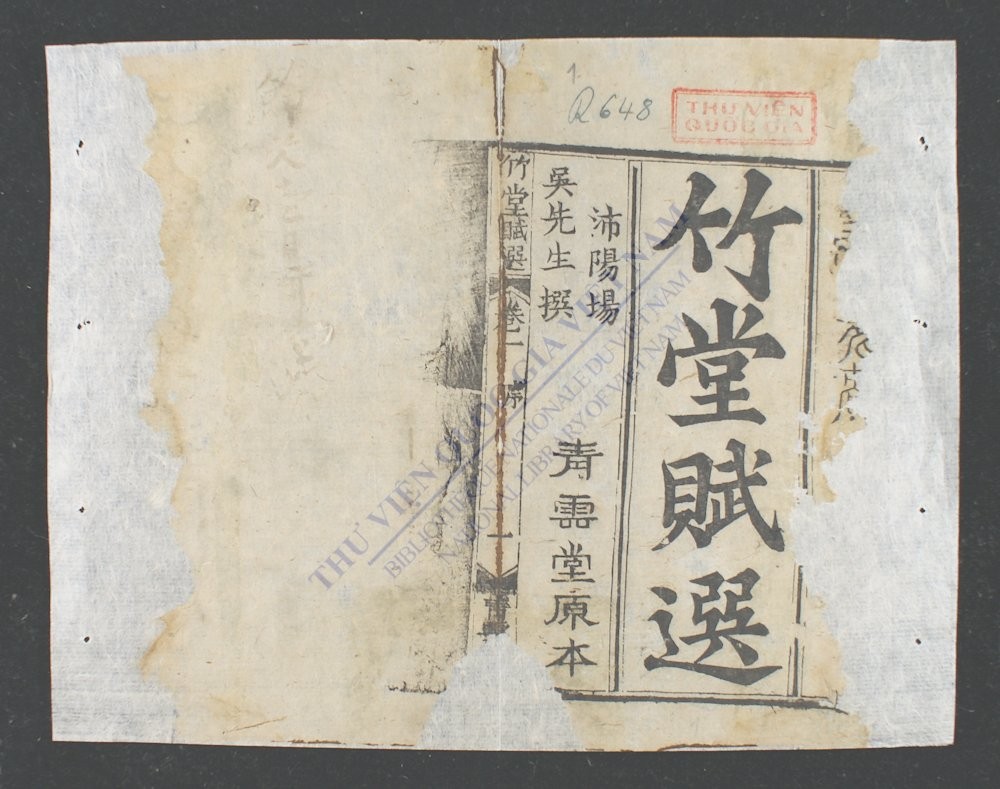 1
R 648
THƯ VIỆN
QUỐC GIA
竹堂賦選
沛陽場
吳先生撰
青雲堂原本
竹堂賦選 卷一 序 一
THƯ VIỆN QUỐC GIA VIỆT NAM
BIBLIOTHÈQUE NATIONALE DU VIETNAM
NATIONAL LIBRARY OF VIETNAM